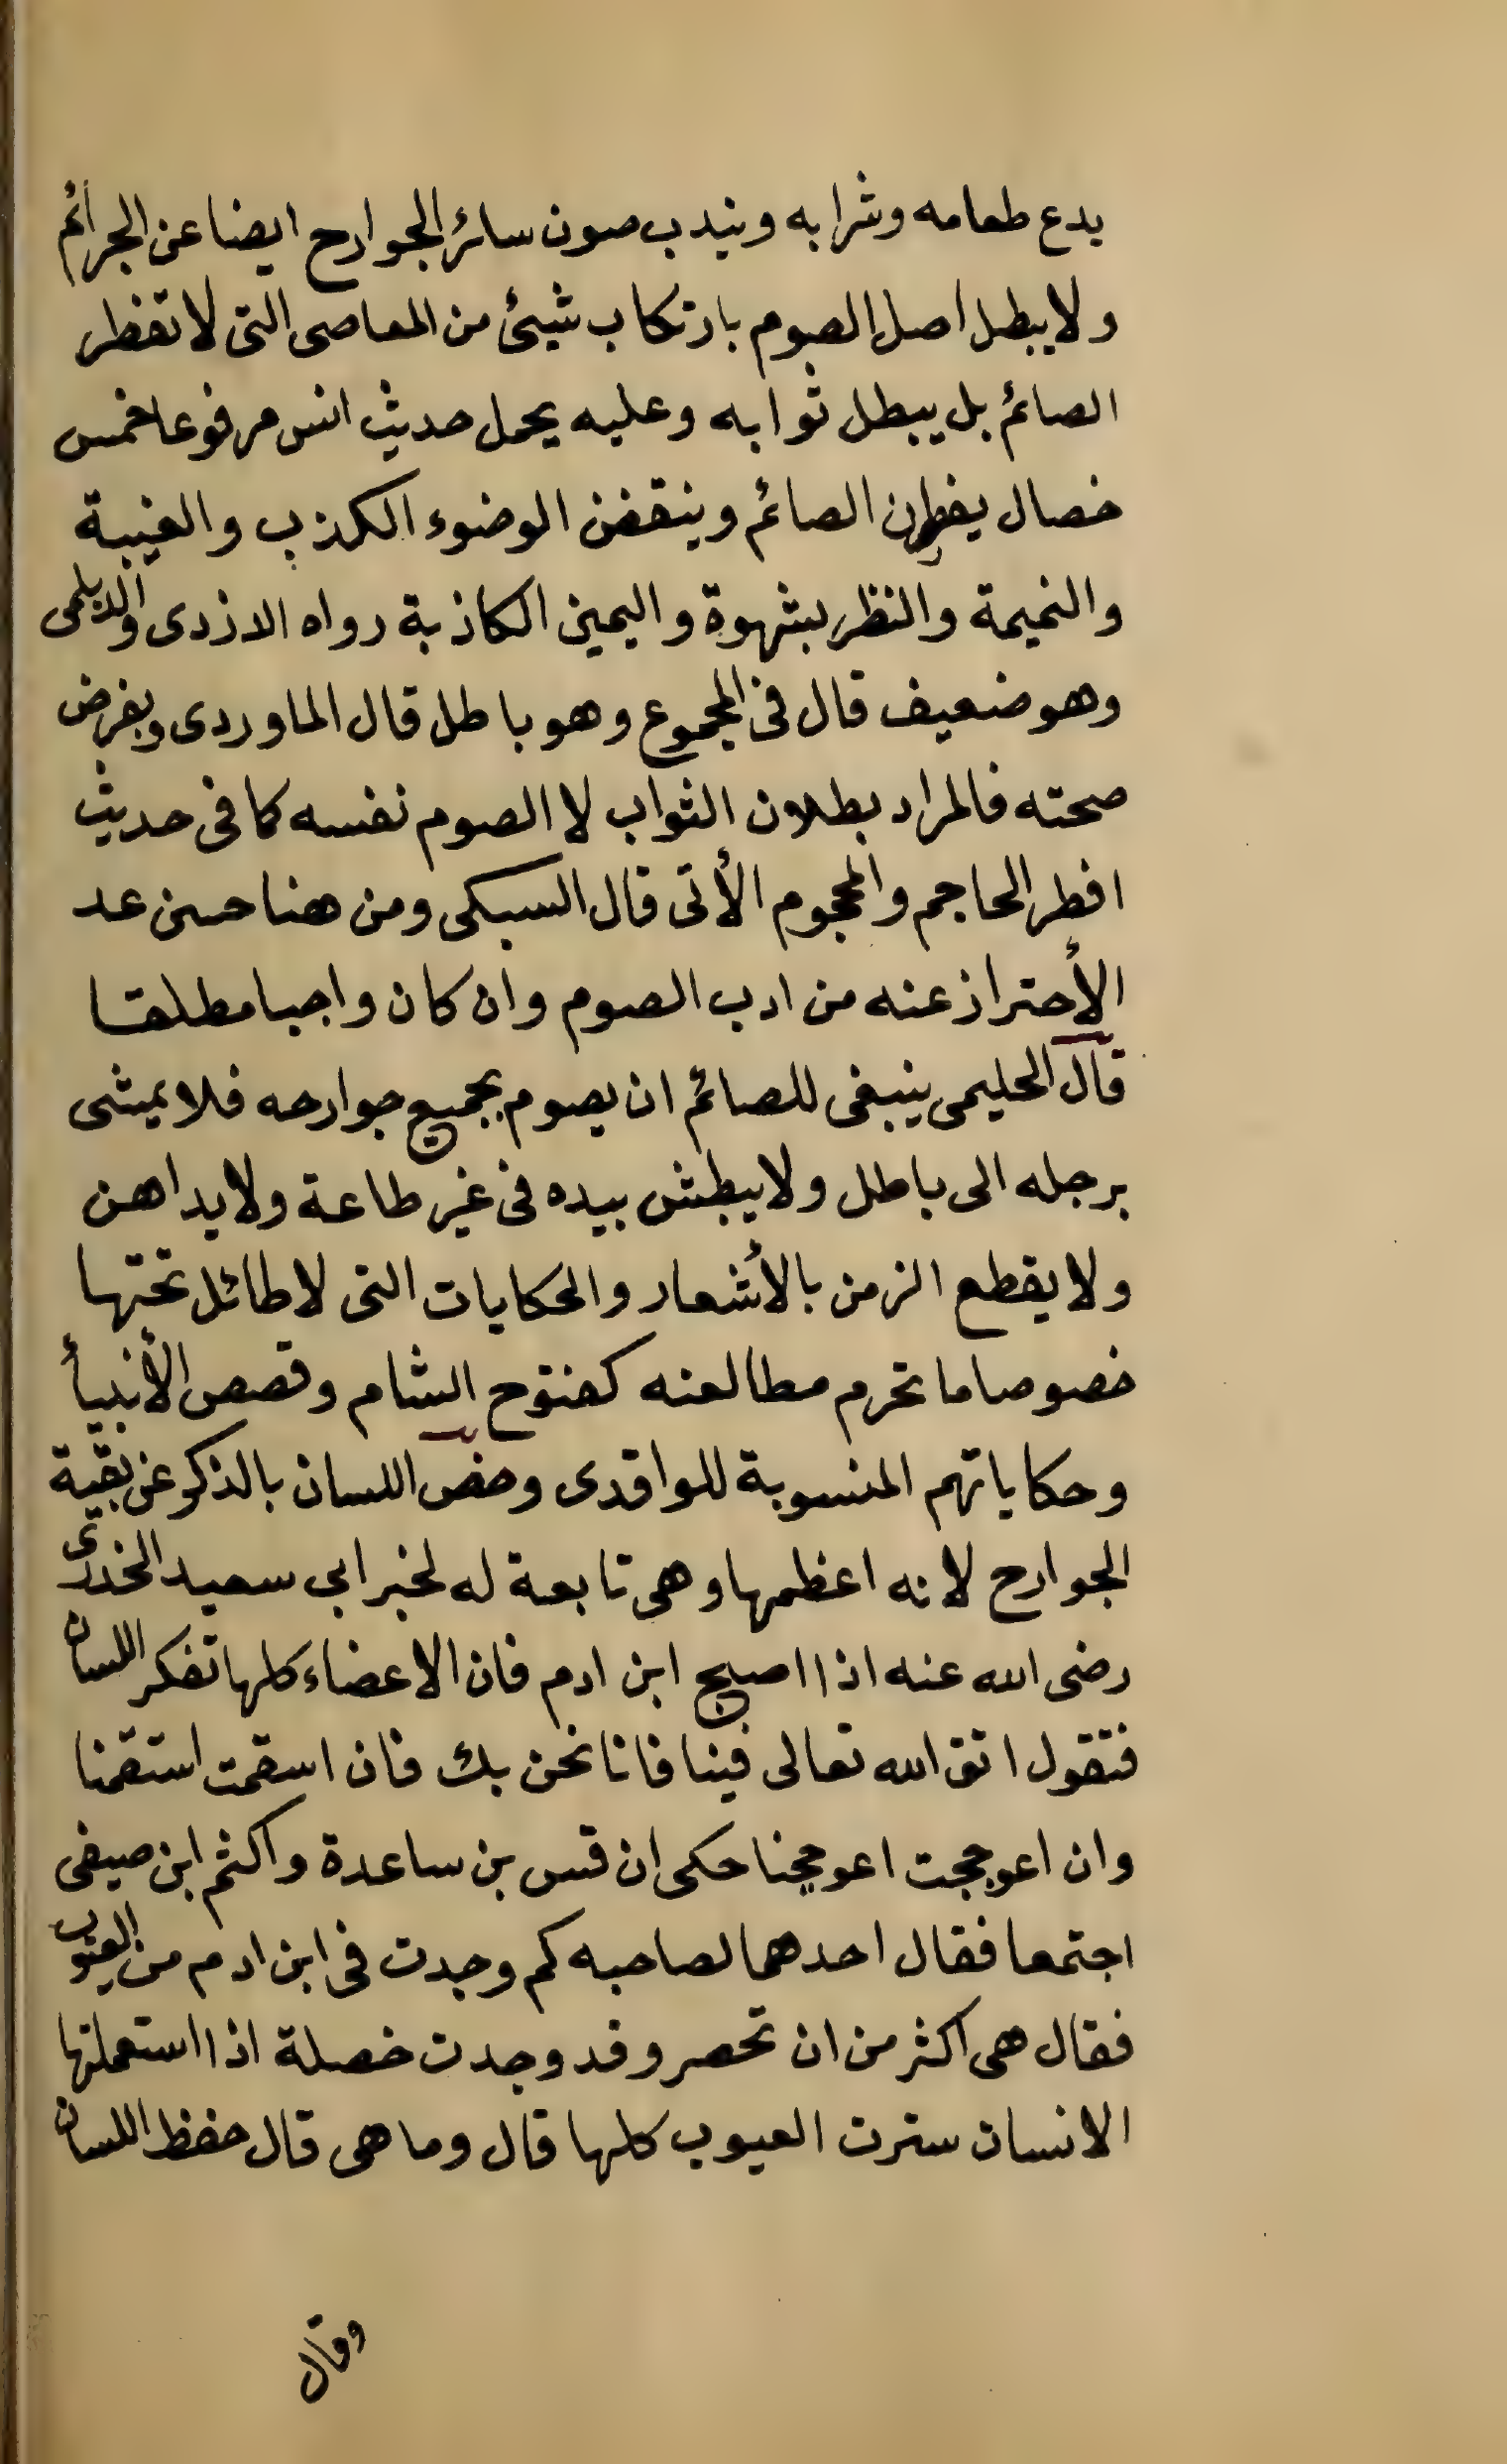 يدع طعامه وشرابه ويندب صون سائر الجوارح ايضا عن الجرائم
ولا يبطل اصل الصوم بارتكاب شيئ من المعاصى التى لا تفطر
الصائم بل يبطل ثوابه وعليه يحمل حديث انس مرفوعا خمس
خصال يفطرن الصائم وينقضن الوضوء الكذب والغيبة
والنميمة والنظر بشهوة واليمين الكاذبة رواه الازدى والديلمى
وهو ضعيف قال فى المجموع وهو باطل قال الماوردى وبفرض
صحته فالمراد بطلان الثواب لا الصوم نفسه كما فى حديث
افطر الحاجم والمحجوم الأتى قال السبكى ومن هنا حسن عد
الأحتراز عنه من ادب الصوم وان كان واجبا مطلقا
قال الحليمى ينبغى للصائم ان يصوم بجميع جوارحه فلا يمشى
برجله الى باطل ولا يبطش بيده فى غير طاعة ولا يداهن
ولا يقطع الزمن بالأشعار والحكايات التى لا طائل تحتها
خصوصا ما تحرم مطالعته كفتوح الشام وقصص الأنبيأ
وحكاياتهم المنسوبة للواقدى وخص اللسان بالذكر عن بقية
الجوارح لانه اعظمها وهى تابعة له لخبر ابي سعيد الخدرى
رضى الله عنه اذا اصبح ابن ادم فان الاعضاء كلها تفكر اللسان
فتقول اتق الله تعالى فينا فانا نحن بك فان اسقمت استقمنا
وان اعوججت اعوججنا حكى ان قس بن ساعدة واكثم ابن صيفى
اجتمعا فقال احدهما لصاحبه كم وجدت فى ابن ادم من العيوب
فقال هى اكثر من ان تحصر وقد وجدت خصلة اذا استعملتها
الانسان سترت العيوب كلها قال وما هى قال حفظ اللسان
وقال